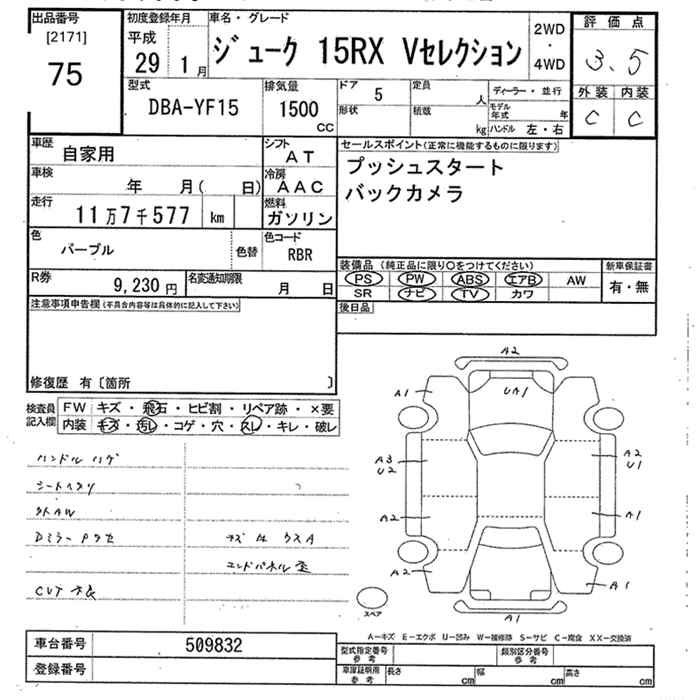 出品番号
[2171]
75
初度登録年月
平成
29 1月
車名・グレード
ジューク 15RX Vセレクション
2WD
・
4WD
評価点
3.5
外装 内装
C C
型式
DBA-YF15
排気量
1500
CC
ドア 5
形状
定員 人
積載 kg
ディーラー・並行
モデル年式 年
ハンドル 左・右
車歴
自家用
シフト
AT
車検
年 月( 日)
冷房
AAC
走行
11万7千577 km
燃料
ガソリン
色
パープル
色替
色コード
RBR
R券
9,230円
名変通知期限
月 日
セールスポイント(正常に機能するものに限ります)
プッシュスタート
バックカメラ
装備品(純正品に限り○をつけてください)
PS PW ABS エアB AW
SR ナビ TV カワ
新車保証書
有・無
後日品
注意事項申告欄(不具合内容等は具体的に記入して下さい)
修復歴 有〔箇所 〕
検査員
記入欄
FW キズ・飛石・ヒビ割・リペア跡・×要
内装 キズ・汚レ・コゲ・穴・スレ・キレ・破レ
ハンドルハゲ
シートヘタリ
外AW
Dミラー
CVT
エンドパネル歪
A2
A1
UA1
A3
U2
A2
U1
A2
A1
A2
A1
A1
スペア
A−キズ E−エクボ U−凹み W−補修跡 S−サビ C−腐食 XX−交換済
車台番号 509832
登録番号
型式指定番号
参考
類別区分番号
参考
車庫証明用
参考
長さ cm
幅 cm
高さ cm